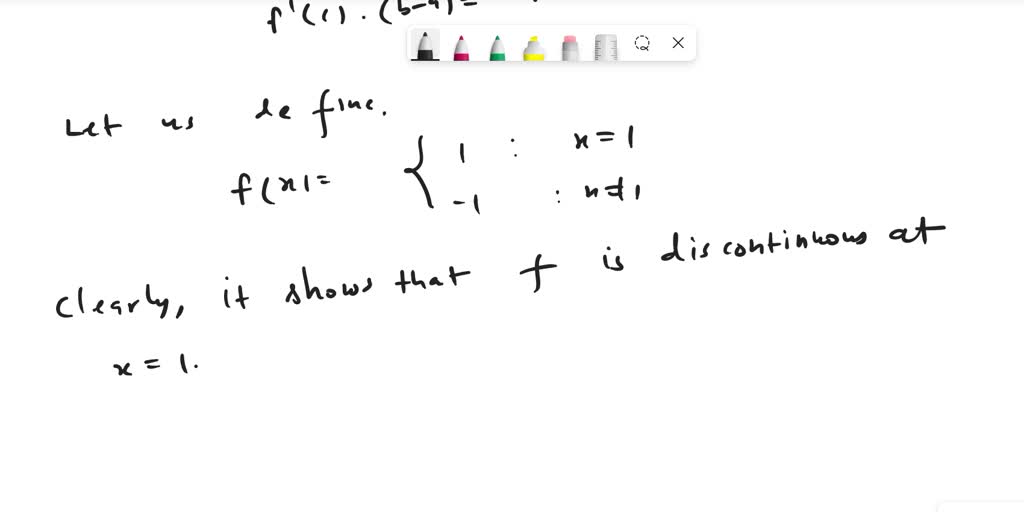 f'(c) . (b-a) =
Let us define.
f(x) = { 1 : x = 1
-1 : x ≠ 1
Clearly, it shows that f is discontinuous at
x = 1.